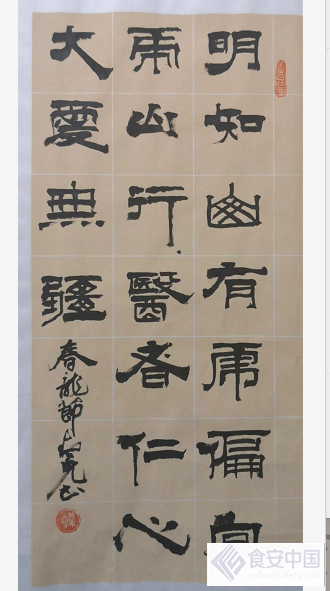 明知山有虎偏向
虎山行醫者仁心
大愛無疆
春龍節
食安中国